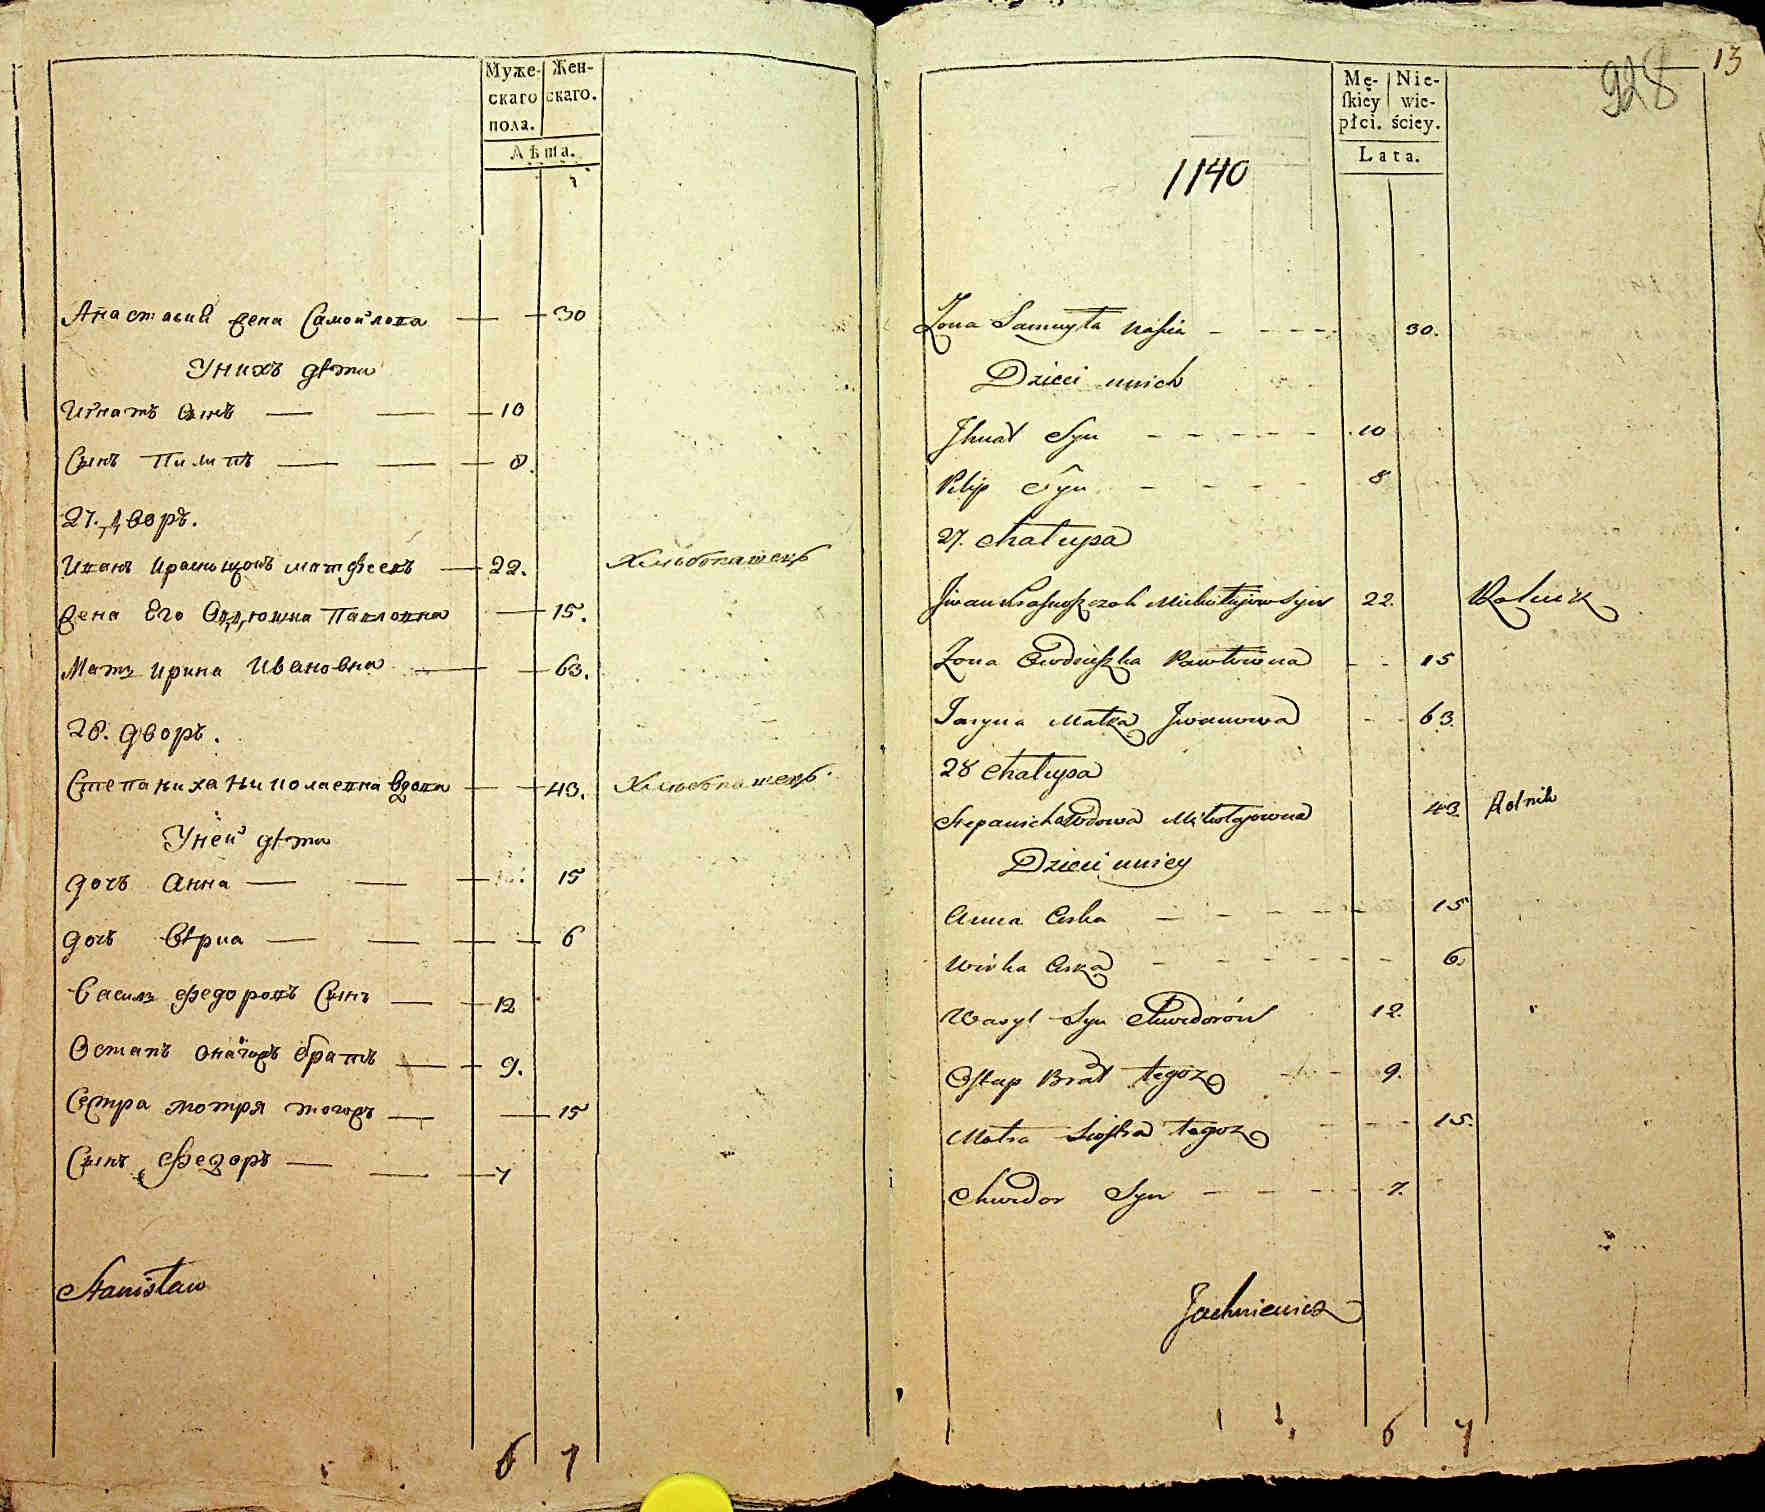 Муже- Жен-
скаго скаго.
пола.
Лѣта.
Анастасия жена Самойлова — 30
У нихъ дѣти
Игнатъ сынъ — 10
Сынъ Пилипъ — 8.
27. дворъ.
Иванъ матфеевъ — 22. Хлѣбопашецъ
жена Его Овдюшка Павловна — 15.
Мать Ирина Ивановна — 63.
28. дворъ.
Степаниха Николаевна вдова — 43. Хлѣбопашецъ.
У ней дѣти
дочь Анна — 15
дочь вѣрка — 6
Василь Федоровъ Сынъ — 12
Остапъ братъ — 9.
Сестра мотря тогожъ — 15
Сынъ Федоръ — 7
Stanisław
6 7
13
928
Mę- Nie-
skiey wie-
płci. ściey.
Lata.
1140
Zona Samuyła Nasia - - - - - 30.
Dzieci unich
Ihnat Syn - - - - - 10
Pilip Syn - - - - 8
27. chałupa
Jwan Michałajow Syn 22. Rolnik
Zona Owdziuszka Pawłowna - - 15
Jaryna Matka Jwanowa - - 63.
28 chałupa
Stepanicha Wdowa Mikołajowna 43. Rolnik
Dzieci uniey
Anna Corka - - - - - 15
Wirka Corka - - - - - - 6.
Wasyl Syn Chwedorów 12.
Ostap Brat tegoz - - 9.
Motra Siostra tegoz - - - 15.
Chwedor Syn - - - - 7.
Jachniewicz
6 7